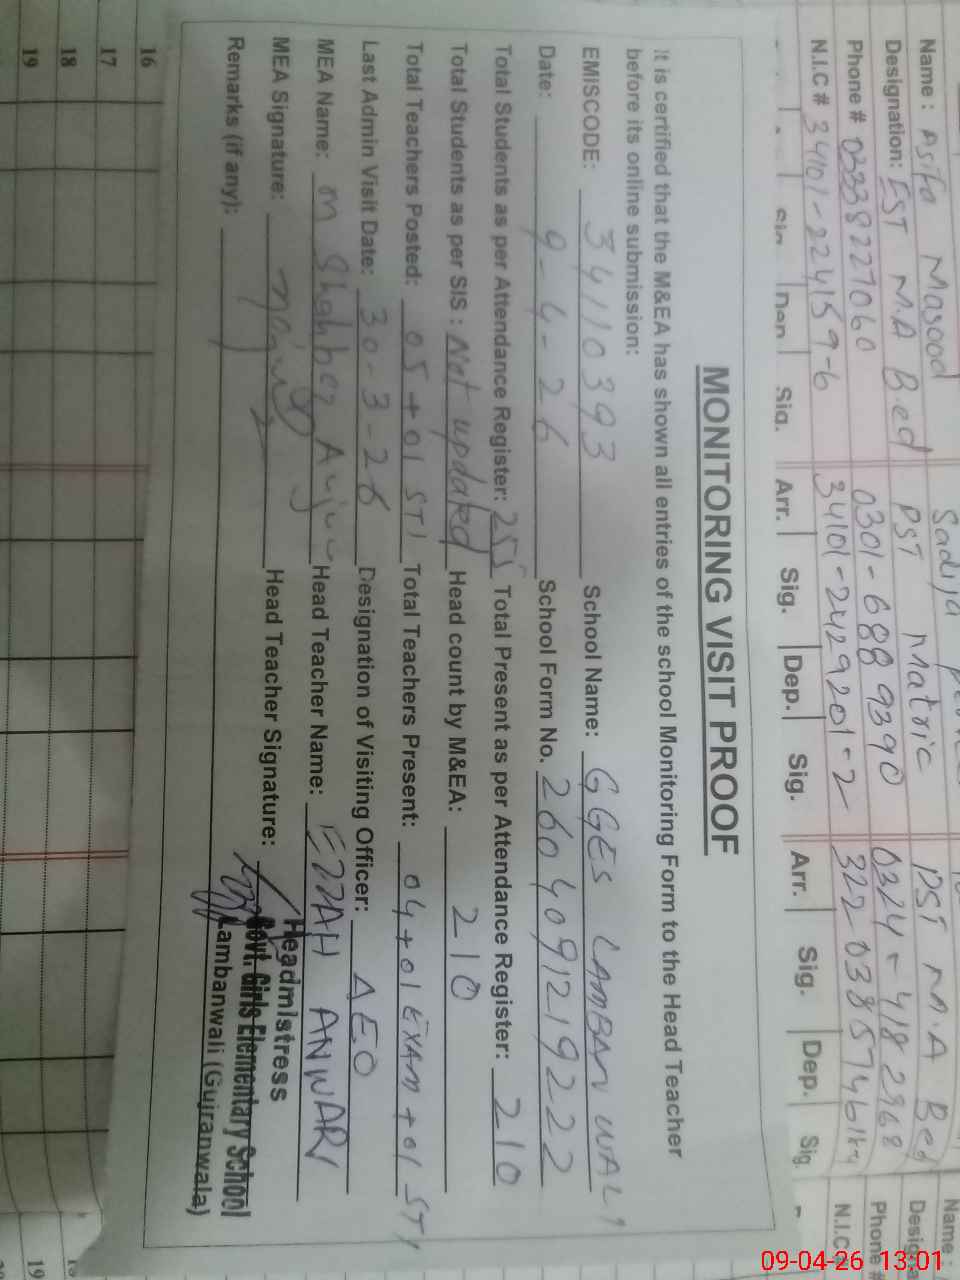 Name : Asifa Masood
Designation: EST M.A B.ed
Phone # 03338227060
N.I.C # 34101-2241159-6
Sadija
PST Matric
0301-6889390
34101-2429201-2
PST M.A Bed
0324-4182968
Name :
Phone #
N.I.C #
Sig. Dep. Sig. Arr. Sig. Dep. Sig. Arr. Sig. Dep. Sig.
MONITORING VISIT PROOF
It is certified that the M&EA has shown all entries of the school Monitoring Form to the Head Teacher
before its online submission:
EMISCODE: 34110393 School Name: GGES LAMBANWALI
Date: 9-4-26 School Form No. 2604091219222
Total Students as per Attendance Register: 255 Total Present as per Attendance Register: 210
Total Students as per SIS : Not updated Head count by M&EA: 210
Total Teachers Posted: 05+01 STI Total Teachers Present: 04+01 EXAM+01 STI
Last Admin Visit Date: 30-3-26 Designation of Visiting Officer: AEO
MEA Name: M Shahbaz Anjum Head Teacher Name: EZZAH ANWAR
MEA Signature: Head Teacher Signature:
Remarks (if any):
Headmistress
Govt. Girls Elementary School
Lambanwali (Gujranwala)
16
17
18
19
19
09-04-26 13:01